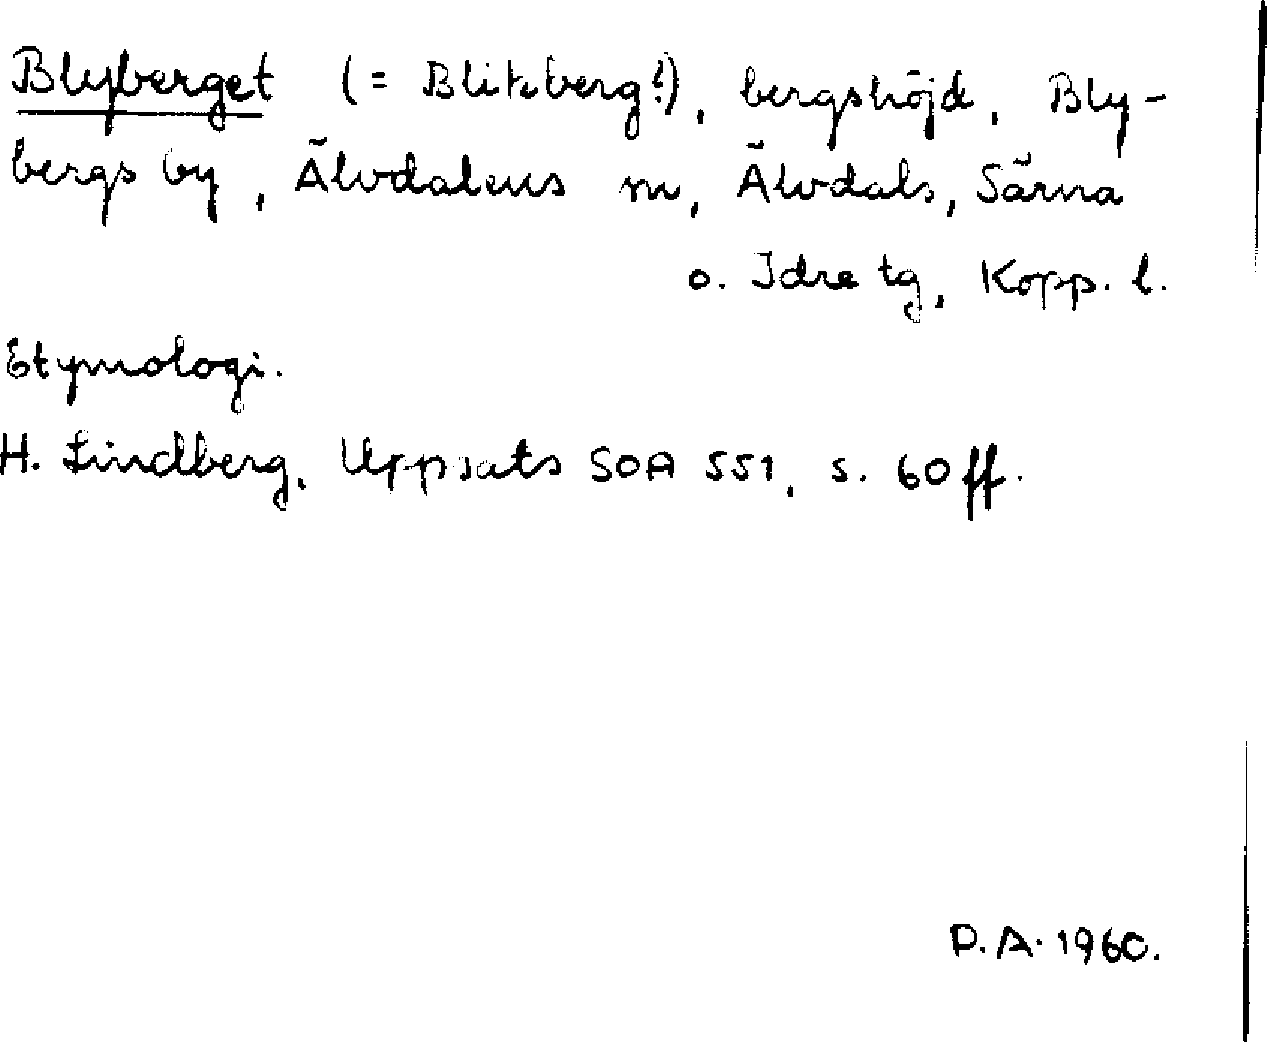 Blyberget (= Blitzberg!), bergshöjd, Bly-
bergs by, Älvdalens sn, Älvdals, Särna
o. Idre tg, Kopp. l.
Etymologi.
H. Lindberg, Uppsats SOA 551, s. 60 ff.
D.A. 1960.